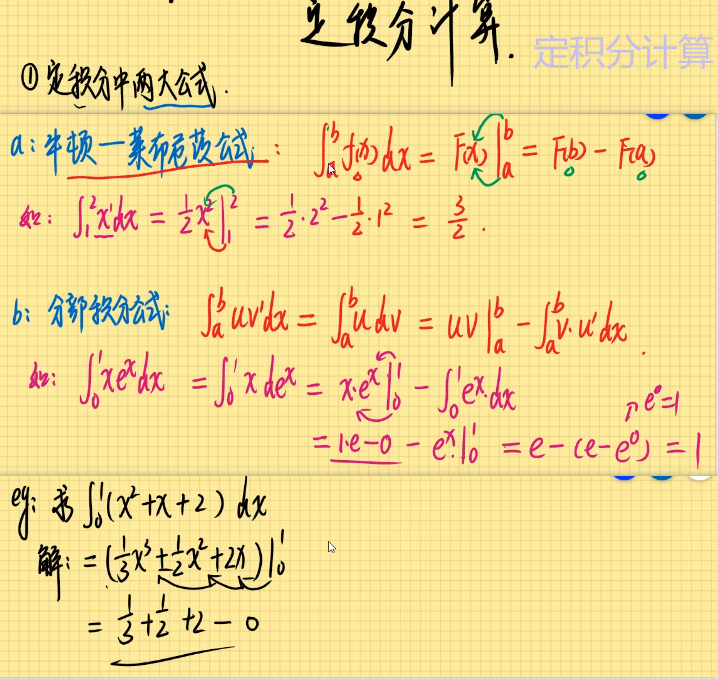 定积分计算.
定积分计算
① 定积分中两大公式.
a: 牛顿—莱布尼茨公式: ∫_a^b f(x)dx = F(x)|_a^b = F(b) - F(a)
如: ∫_1^2 x'dx = 1/2 x²|_1^2 = 1/2·2² - 1/2·1² = 3/2.
b: 分部积分公式: ∫_a^b uv'dx = ∫_a^b u dv = uv|_a^b - ∫_a^b v·u'dx.
如: ∫_0^1 xe^x dx = ∫_0^1 x de^x = x·e^x|_0^1 - ∫_0^1 e^x·dx
e^0=1
= 1·e-0 - e^x|_0^1 = e-(e-e^0) = 1
eg: 求 ∫_0^1 (x²+x+2) dx
解: = (1/3 x³ + 1/2 x² + 2x)|_0^1
= 1/3 + 1/2 + 2 - 0